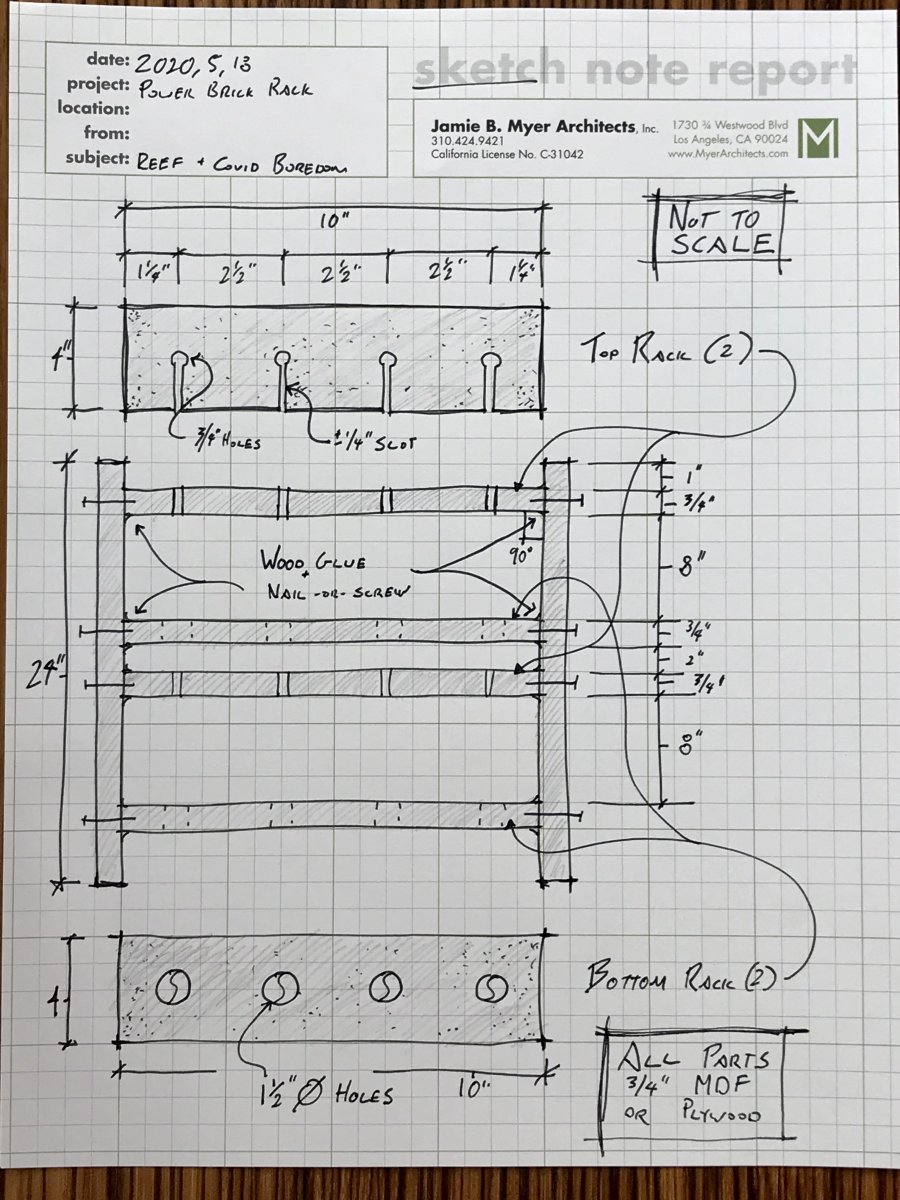 sketch note report
date: 2020, 5, 13
project: POWER BRICK RACK
location:
from:
subject: REEF + COVID BOREDOM
Jamie B. Myer Architects, Inc.
310.424.9421
California License No. C-31042
1730 ¾ Westwood Blvd
Los Angeles, CA 90024
www.MyerArchitects.com
M
NOT TO
SCALE
10"
1¼" 2½" 2½" 2½" 1¼"
4"
TOP RACK (2)
3/4" HOLES
±1/4" SLOT
1"
3/4"
90°
8"
WOOD GLUE
+
NAIL -OR- SCREW
3/4"
24"
2"
3/4"
8"
4
BOTTOM RACK (2)
1½" Ø HOLES
10"
ALL PARTS
3/4" MDF
OR PLYWOOD